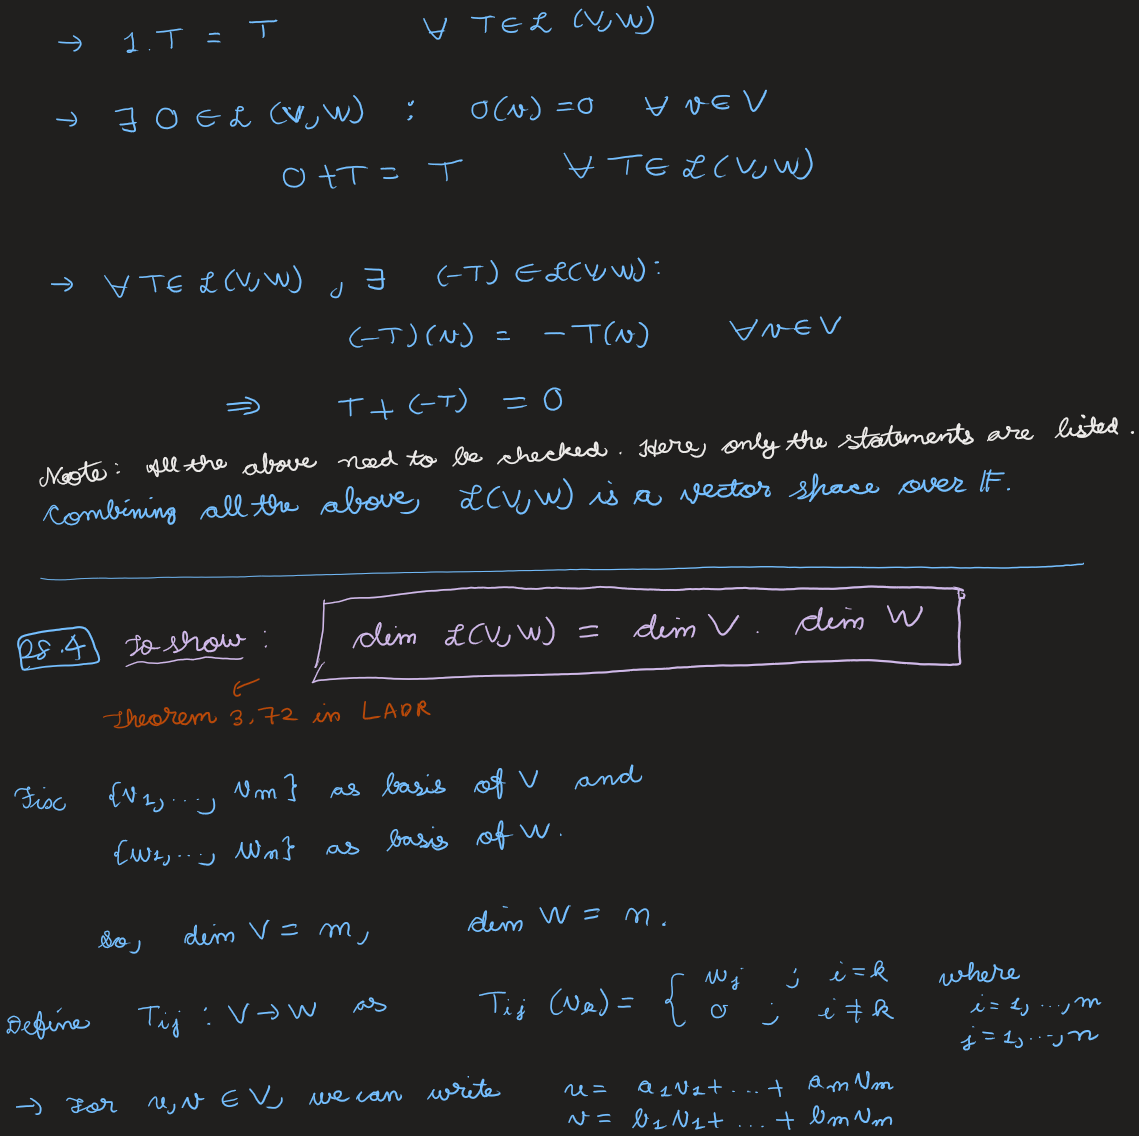 → 1.T = T ∀ T ∈ ℒ (V,W)
→ ∃ 0 ∈ ℒ (V,W) : 0(v) = 0 ∀ v ∈ V
0 + T = T ∀ T ∈ ℒ(V,W)
→ ∀ T ∈ ℒ(V,W) , ∃ (-T) ∈ ℒ(V,W):
(-T)(v) = -T(v) ∀ v ∈ V
⇒ T + (-T) = 0
Note: All the above need to be checked. Here, only the statements are listed.
Combining all the above, ℒ(V,W) is a vector space over 𝔽.
Q8.4 To show : dim ℒ(V,W) = dim V . dim W
Theorem 3.72 in LADR
Fix {v₁, ..., vₘ} as basis of V and
{w₁, ..., wₙ} as basis of W.
So, dim V = m, dim W = n.
Define Tᵢⱼ : V → W as Tᵢⱼ (vₖ) = { wⱼ ; i = k where
0 ; i ≠ k i = 1, ..., m
j = 1, ..., n
→ For u, v ∈ V, we can write u = a₁v₁ + ... + aₘvₘ
v = b₁v₁ + ... + bₘvₘ